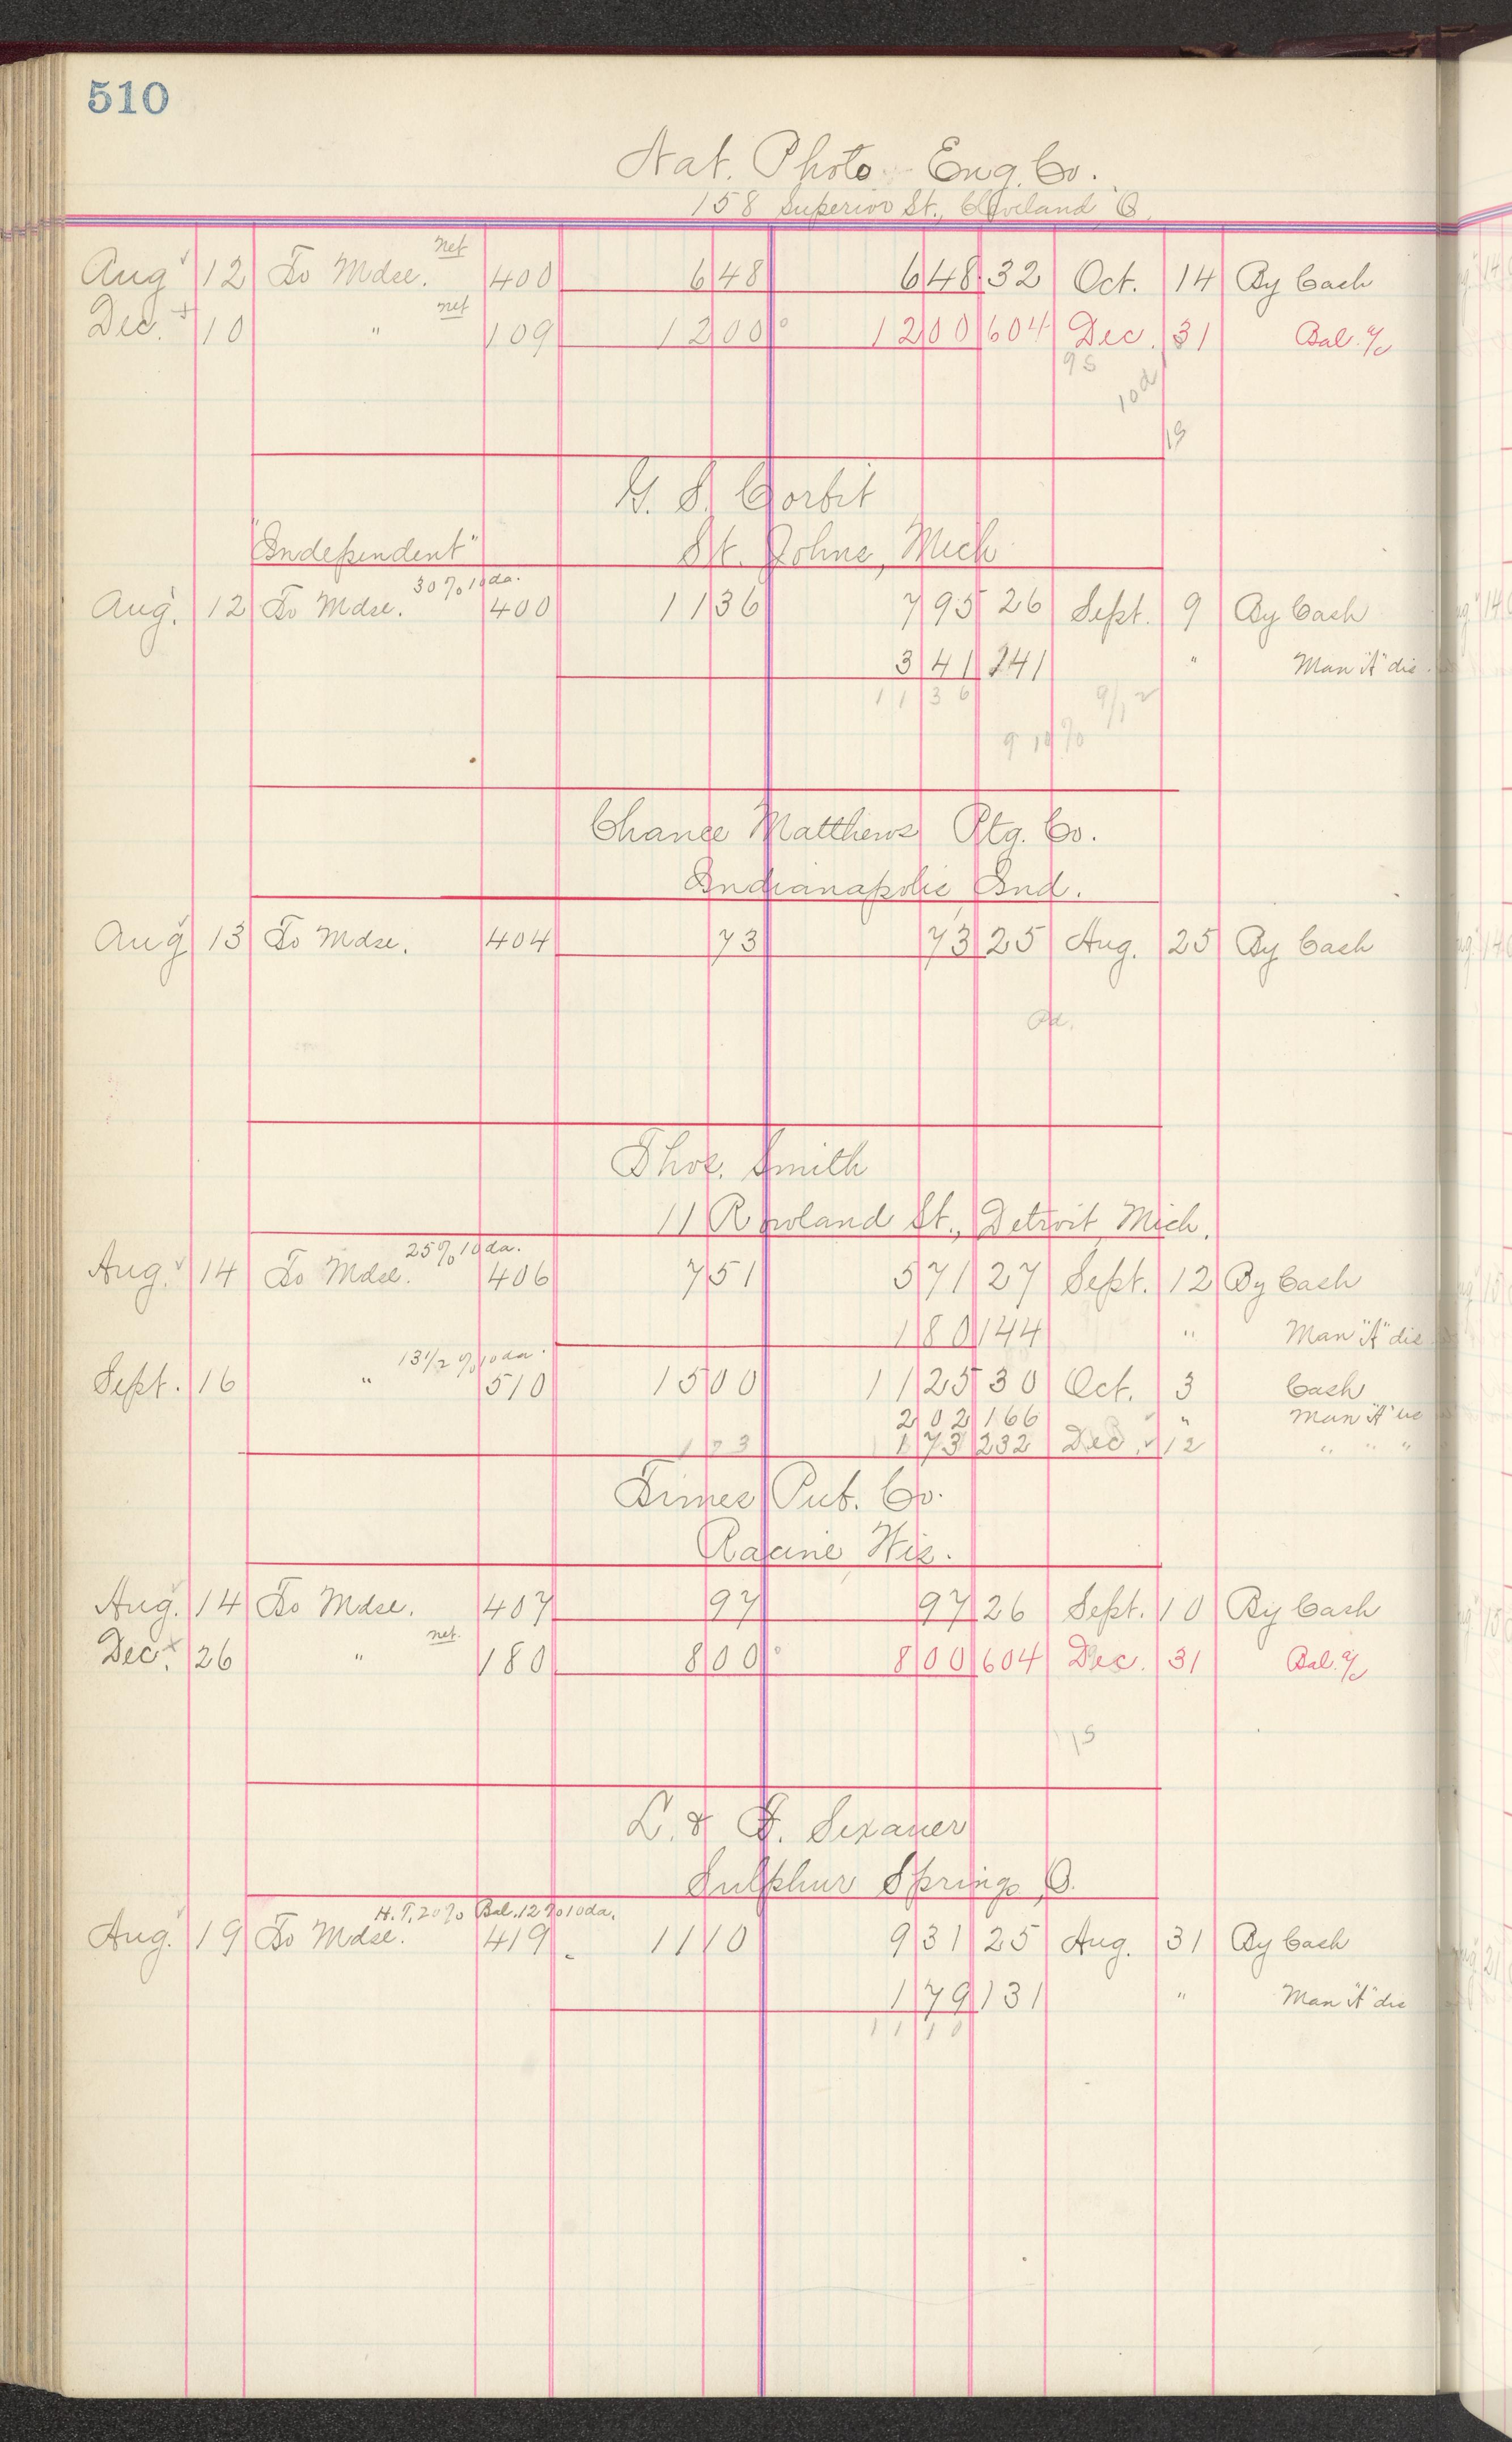 510
Nat. Photo-Eng. Co.
158 Superior St., Cleveland O.
net
Aug 12 To Mdse. 400 6 48 6 48 32 Oct. 14 By Cash
net
Dec. 10 " 109 12 00 12 00 604 Dec. 31 Bal. a/c
95
10d
15
G. S. Corbit
"Independent" St. Johns, Mich
30% 10 da.
Aug. 12 To Mdse. 400 11 36 7 95 26 Sept. 9 By Cash
3 41 241 " Man "A" dis
11 36 9/12
9 10%
Chance Matthews Ptg. Co.
Indianapolis, Ind.
Aug 13 To Mdse. 404 73 73 25 Aug. 25 By Cash
Pd.
Thos. Smith
11 Rowland St., Detroit Mich.
25% 10 da.
Aug. 14 To Mdse. 406 7 51 5 71 27 Sept. 12 By Cash
1 80 144 " Man "A" dis
13 1/2 % 10 da.
Sept. 16 " 510 15 00 11 25 30 Oct. 3 Cash
2 02 166 " Man "A"
1 73 1 73 232 Dec. 12 " " "
Times Pub. Co.
Racine Wis.
Aug. 14 To Mdse. 407 97 97 26 Sept. 10 By Cash
net.
Dec. 26 " 180 8 00 8 00 604 Dec. 31 Bal. a/c
15
L. & F. Sexauer
Sulphur Springs, O.
H.T. 20% Bal. 12% 10 da.
Aug. 19 To Mdse. 419 11 10 9 31 25 Aug. 31 By Cash
1 79 131 " Man "A" dis
11 10